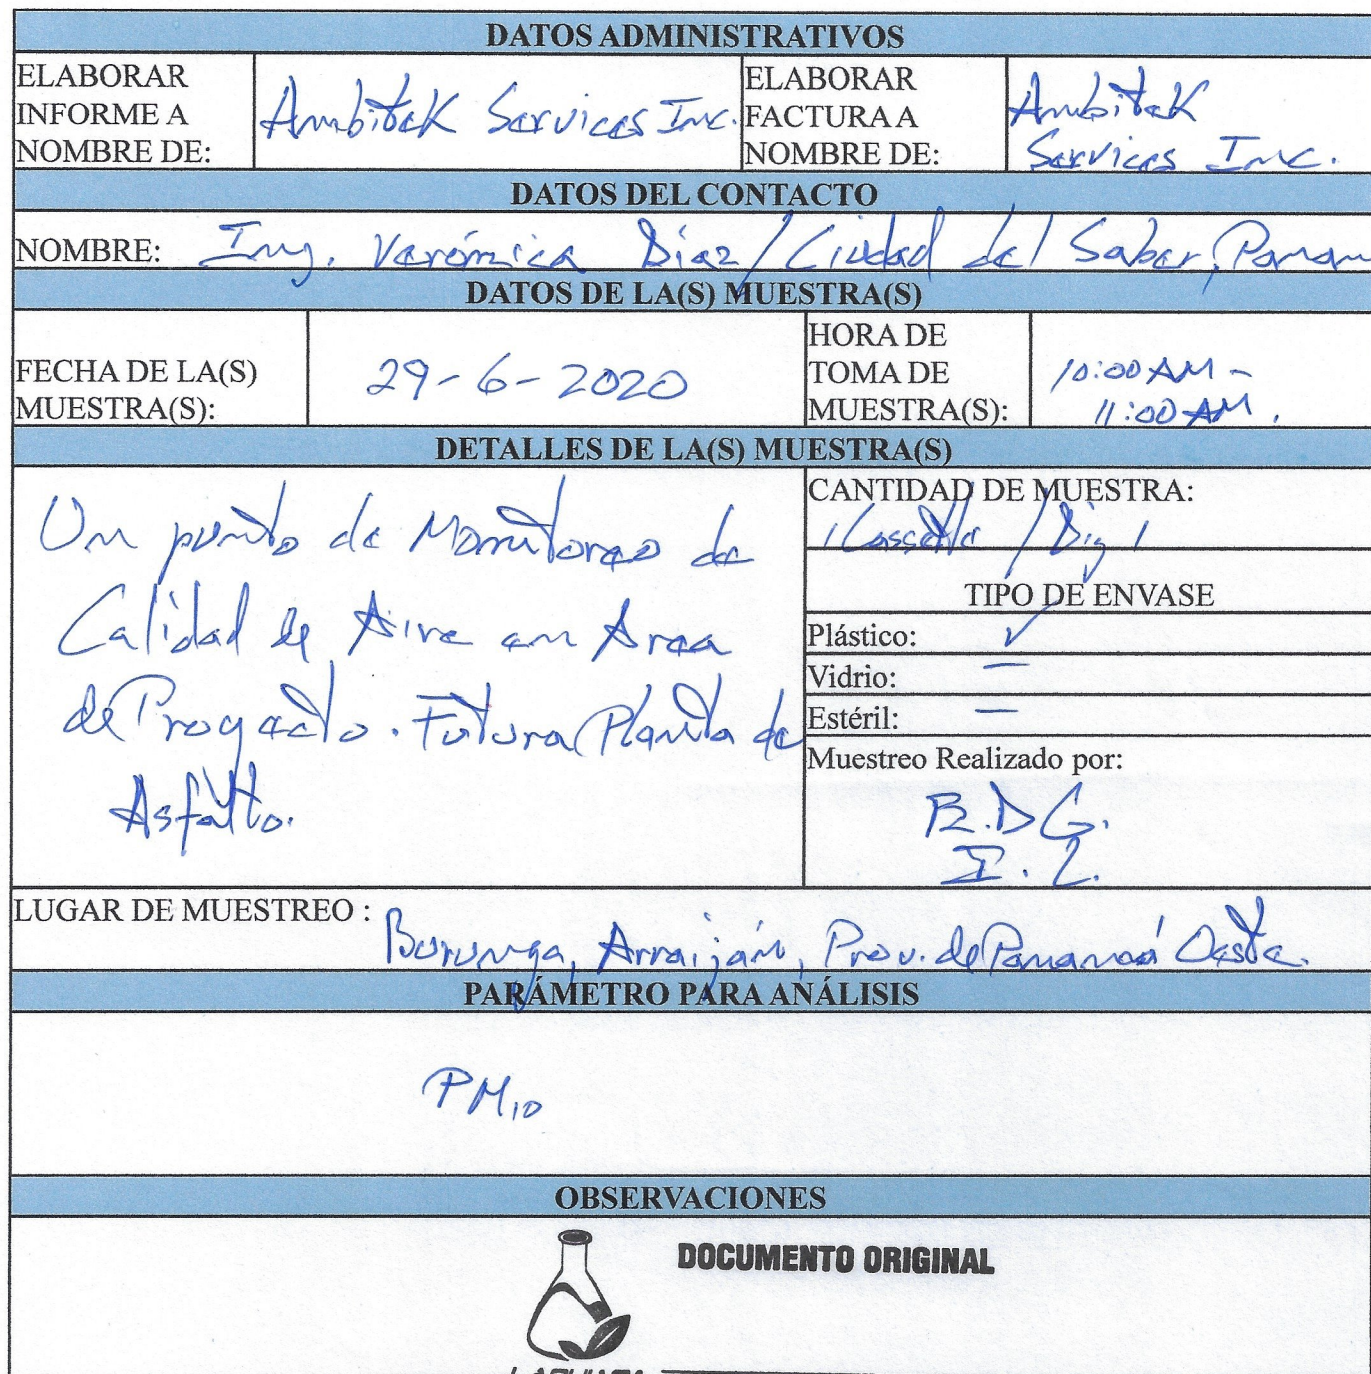 DATOS ADMINISTRATIVOS
ELABORAR
INFORME A
NOMBRE DE:
Ambitek Services Inc.
ELABORAR
FACTURA A
NOMBRE DE:
Ambitek
Services Inc.
DATOS DEL CONTACTO
NOMBRE: Ing. Verónica Díaz / Ciudad del Saber, Panam
DATOS DE LA(S) MUESTRA(S)
FECHA DE LA(S)
MUESTRA(S):
29-6-2020
HORA DE
TOMA DE
MUESTRA(S):
10:00 AM -
11:00 AM.
DETALLES DE LA(S) MUESTRA(S)
Un punto de Monitoreo de
Calidad de Aire en Area
de Proyecto. Futura Planta de
Asfalto.
CANTIDAD DE MUESTRA:
1 Cassette /
TIPO DE ENVASE
Plástico: ✓
Vidrio: —
Estéril: —
Muestreo Realizado por:
R.D G.
LUGAR DE MUESTREO : Burunga, Arraiján, Prov. de Panamá Oeste.
PARÁMETRO PARA ANÁLISIS
PM10
OBSERVACIONES
DOCUMENTO ORIGINAL